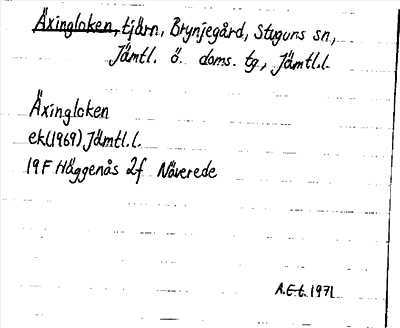 Äxingloken, tjärn, Brynjegård, Stuguns sn,
Jämtl. ö. doms. tg., Jämtl.l.
Äxingloken
ek(1969) Jämtl.l.
19F Häggenås 2f Näverede
A.E.t. 1971